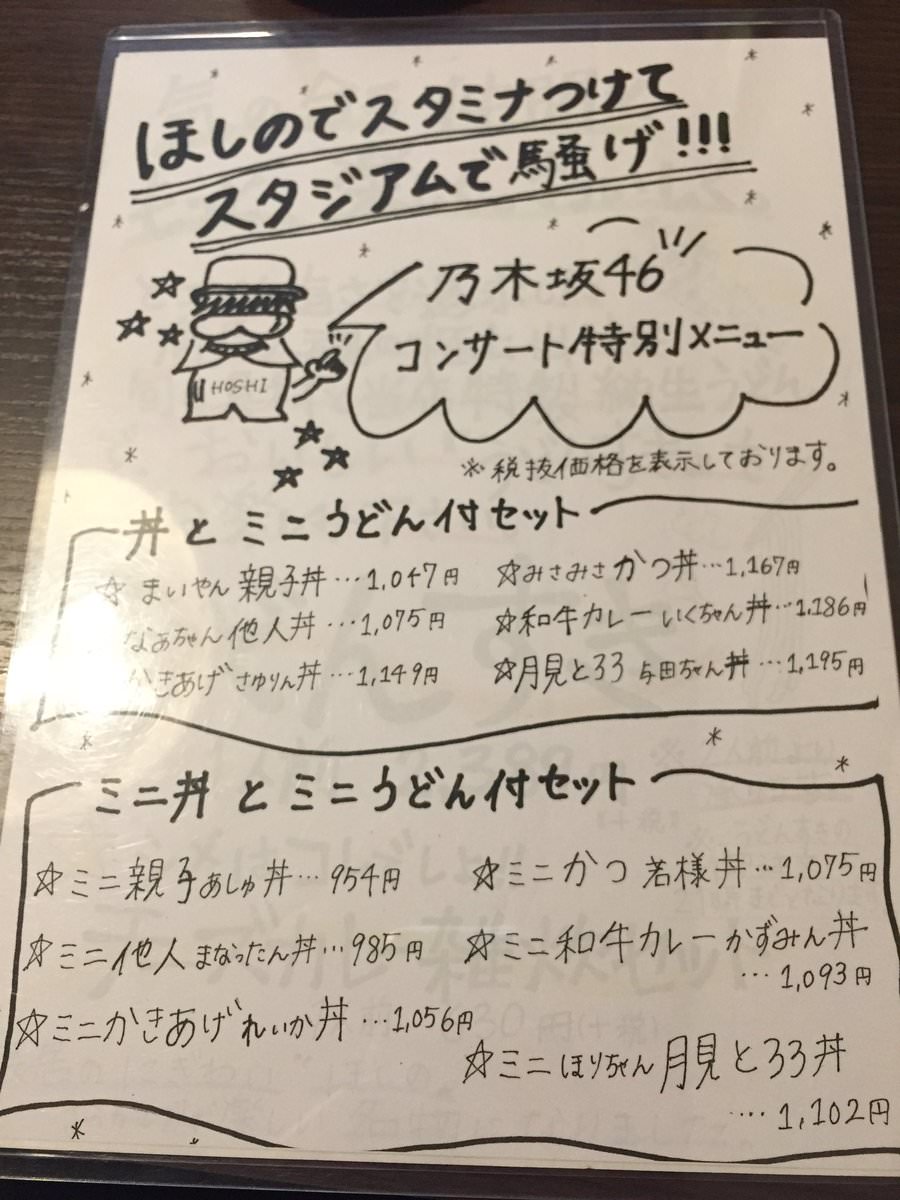 ほしのでスタミナつけて
スタジアムで騒げ!!!
乃木坂46
コンサート特別メニュー
HOSHI
※税抜価格を表示しております。
丼とミニうどん付セット
☆まいやん親子丼…1,047円
なぁちゃん他人丼…1,075円
かきあげさゆりん丼…1,149円
☆みさみさかつ丼…1,167円
☆和牛カレーいくちゃん丼…1,186円
☆月見とろろ与田ちゃん丼…1,195円
ミニ丼とミニうどん付セット
☆ミニ親子あしゅ丼…954円
☆ミニ他人まなったん丼…985円
☆ミニかきあげれいか丼…1,056円
☆ミニかつ若様丼…1,075円
☆ミニ和牛カレーかずみん丼
…1,093円
☆ミニほりちゃん月見とろろ丼
…1,102円